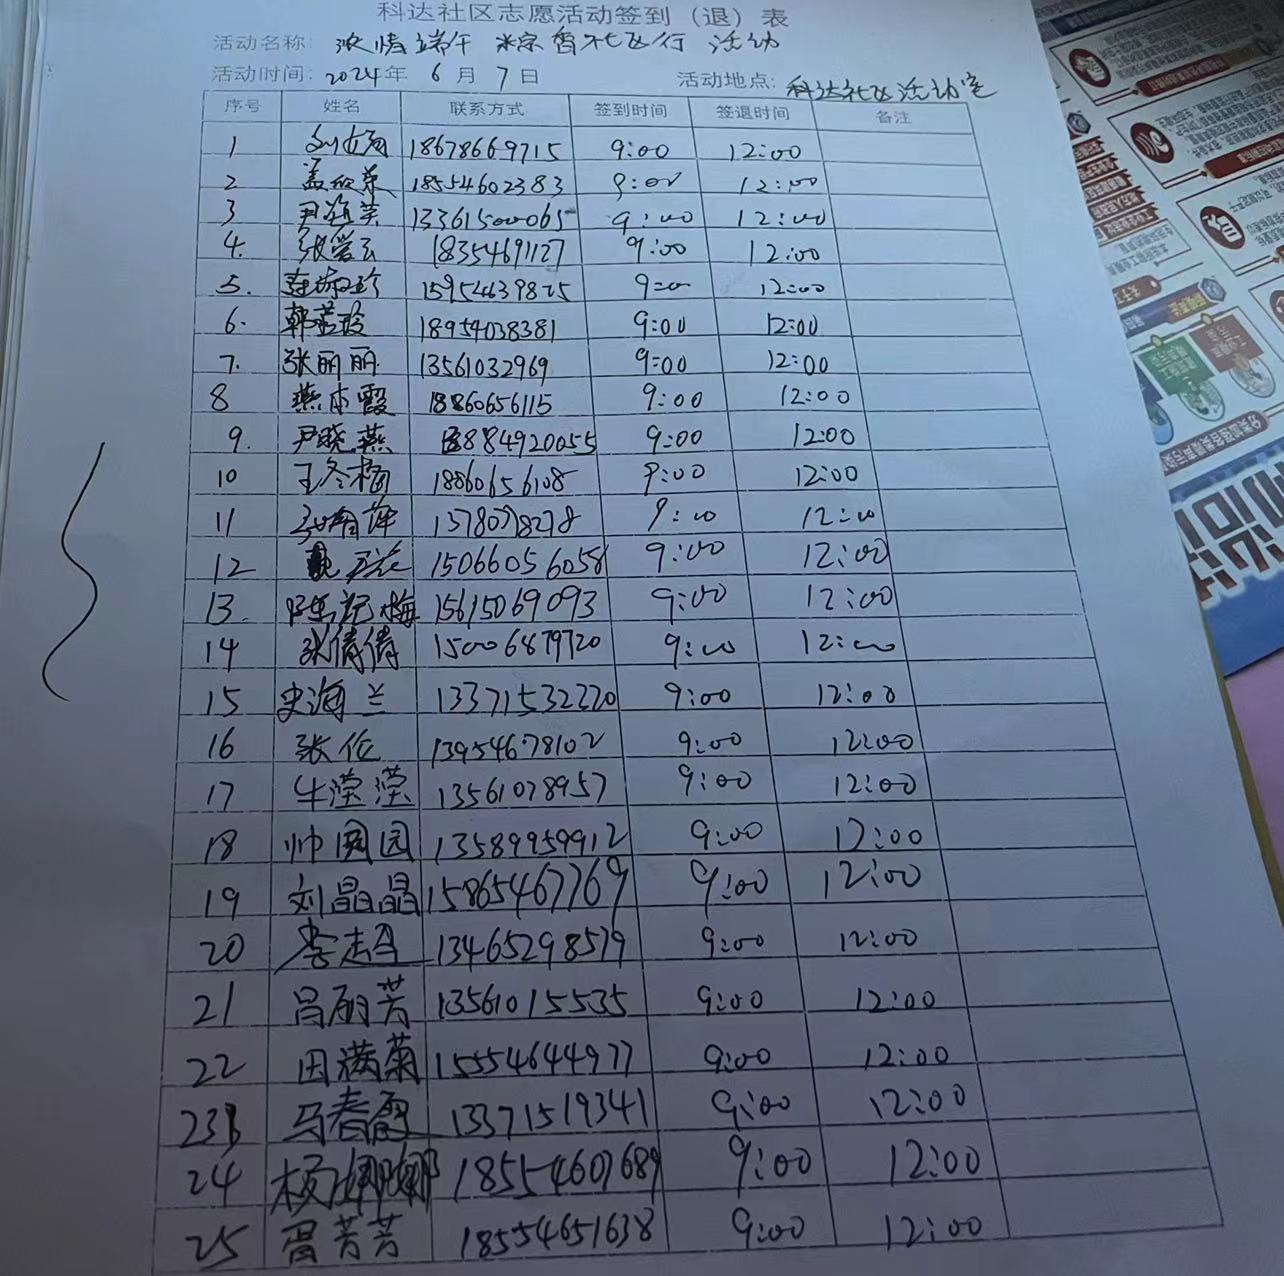 科达社区志愿活动签到（退）表
活动名称：浓情端午 粽香 飞行 活动
活动时间：2024年 6月 7日 活动地点：科达社区活动室
序号 姓名 联系方式 签到时间 签退时间 备注
1 18678669715 9:00 12:00
2 18554602383 9:00 12:00
3 13361500065 9:00 12:00
4. 张爱云 18354691127 9:00 12:00
5. 9:00 12:00
6. 18954038381 9:00 12:00
7. 张丽丽 13561032969 9:00 12:00
8 燕本霞 18860656115 9:00 12:00
9. 尹晓燕 9:00 12:00
10 王冬梅 18860656108 9:00 12:00
11 9:00 12:00
12 15066056058 9:00 12:00
13. 15615069093 9:00 12:00
14 张倩倩 15006879720 9:00 12:00
15 史海兰 13371532220 9:00 12:00
16 张伦 13954678102 9:00 12:00
17 牛滢滢 13561078957 9:00 12:00
18 帅圆园 13589959912 9:00 12:00
19 刘晶晶 15865467769 9:00 12:00
20 13465298579 9:00 12:00
21 吕丽芳 13561015535 9:00 12:00
22 田满菊 15554644977 9:00 12:00
23 马春霞 13371519341 9:00 12:00
24 杨娜娜 18554607689 9:00 12:00
25 胥芳芳 18554651638 9:00 12:00